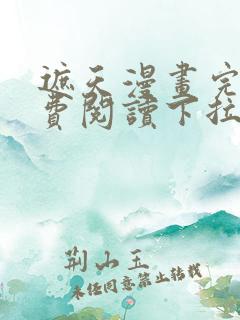 遮天漫畫完
費閱讀下拉
荆山玉
未经同意禁止转载